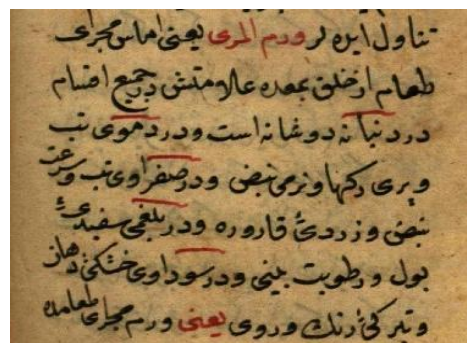 تناول ایده لر ورم المری یعنی اماس مجرای
طعام از خلق بمعده علامتش در جمیع اقسام
درد میانه دو شانه است و در دموی تب
و پری رکها و نرمی نبض و در صفراوی تب و سرعت
نبض و زردئ قاروره و در بلغمی سفیدئ
بول و رطوبت بینی و در سوداوی خشکئ دهان
و تیرکئ رنک و روی یعنی ورم مجرای طعامده